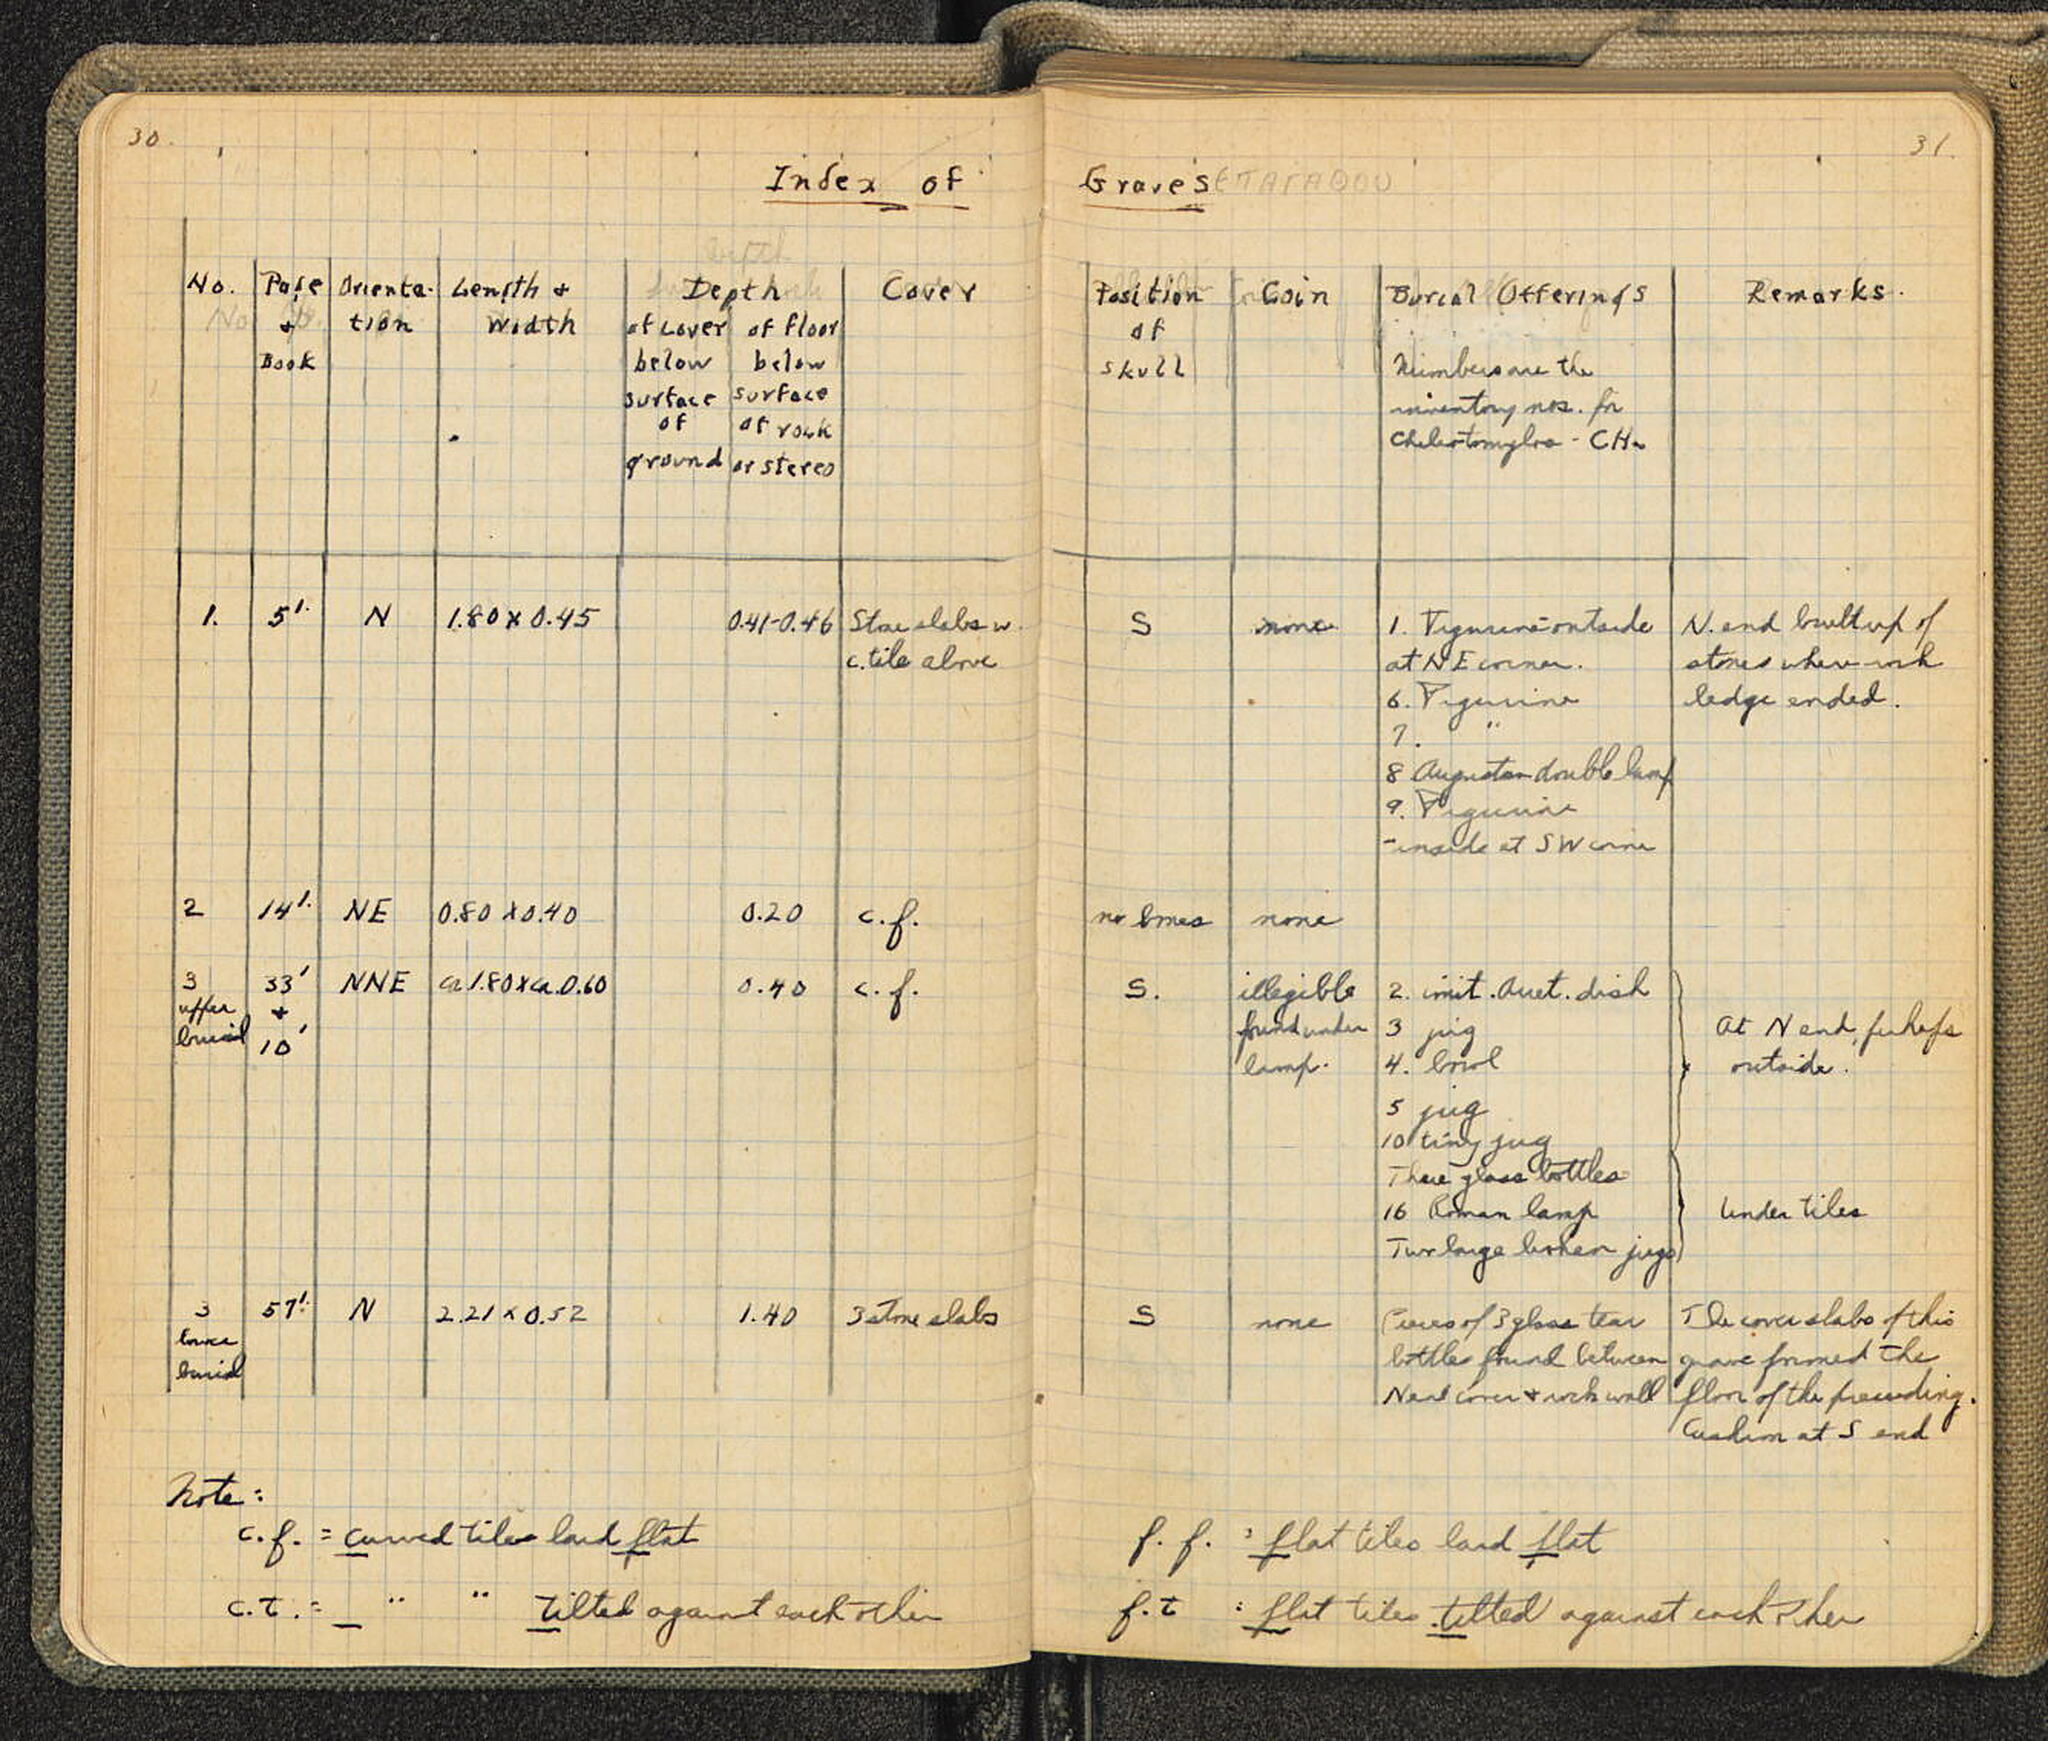 30.
Index of
No. Page + Book
Orientation
Length + Width
Depth
of cover below surface of ground
of floor below surface of rock or stereo
Cover
1. 5'. N 1.80 x 0.45 0.41-0.46 Stone slabs w.
c. tile above
2 14'. NE 0.80 x 0.40 0.20 c.f.
3 33' NNE ca 1.80 x ca. 0.60 0.40 c.f.
upper +
burial 10'
3 57'. N 2.21 x 0.52 1.40 3 stone slabs
lower
burial
Note:
c.f. = curved tiles laid flat
c.t. = " " tilted against each other
31.
Graves
Position of skull
Coin
Burial Offerings
Numbers are the
inventory nos. for
Cheliotomylos - CH.
Remarks.
S none 1. Figurine outside N. end built up of
at NE corner. stones where rock
6. Figurine ledge ended.
7. "
8 Augustan double lamp
9. Figurine
- inside at SW corner
no bones none
S. illegible 2. imit. Arret. dish
found under 3 jug At N end, perhaps
lamp. 4. bowl outside.
5 jug
10 tiny jug
Three glass bottles
16 Roman lamp Under tiles
Two large broken jugs
S none Pieces of 3 glass tear The cover slabs of this
bottles found between grave formed the
N end cover + rock wall floor of the preceding.
Cushion at S end
f. f. : flat tiles laid flat
f. t : flat tiles tilted against each other